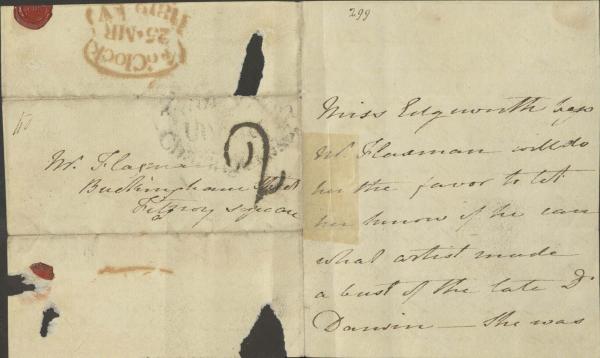 299
4 o'Clock
25 · MR
1819 EV
2
Mr. Flaxman
Buckingham Street
Fitzroy Square
Miss Edgeworth begs
Mr. Flaxman will do
her the favor to let
her know if he can
what artist made
a bust of the late Dr
Darwin — She was